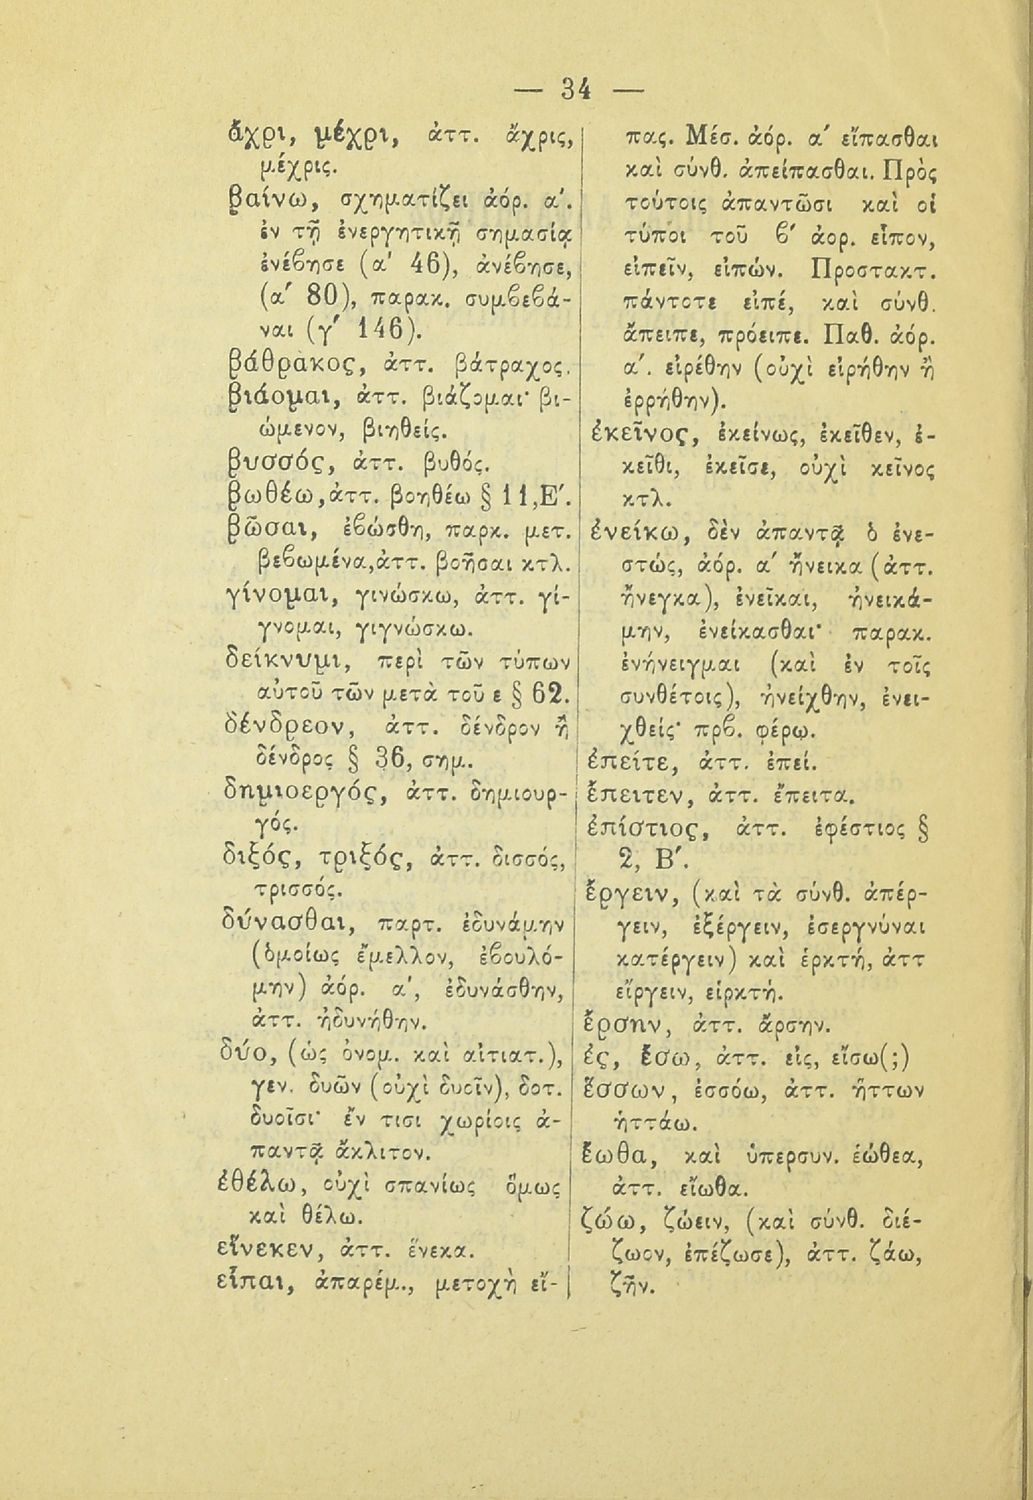 — 34 —
ἄχρι, μέχρι, ἀττ. ἄχρις,
μέχρις.
βαίνω, σχηματίζει ἀόρ. α'.
ἐν τῇ ἐνεργητικῇ σημασίᾳ
ἐνέϐησε (α' 46), ἀνέϐησε,
(α' 80), παρακ. συμϐεϐά-
ναι (γ' 146).
βάθρακος, ἀττ. βάτραχος.
βιάομαι, ἀττ. βιάζομαι· βι-
ώμενον, βιηθείς.
βυσσός, ἀττ. βυθός.
βωθέω, ἀττ. βοηθέω § 11,Ε'.
βῶσαι, ἐϐώσθη, παρκ. μετ.
βεϐωμένα, ἀττ. βοῆσαι κτλ.
γίνομαι, γινώσκω, ἀττ. γί-
γνομαι, γιγνώσκω.
δείκνυμι, περὶ τῶν τύπων
αὐτοῦ τῶν μετὰ τοῦ ε § 62.
δένδρεον, ἀττ. δένδρον ἢ
δένδρος § 36, σημ.
δημιοεργός, ἀττ. δημιουρ-
γός.
διξός, τριξός, ἀττ. δισσός,
τρισσός.
δύνασθαι, παρτ. ἐδυνάμην
(ὁμοίως ἔμελλον, ἐϐουλό-
μην) ἀόρ. α', ἐδυνάσθην,
ἀττ. ἠδυνήθην.
δύο, (ὡς ὀνομ. καὶ αἰτιατ.),
γεν. δυῶν (οὐχὶ δυοῖν), δοτ.
δυοῖσι· ἔν τισι χωρίοις ἀ-
παντᾷ ἄκλιτον.
ἐθέλω, οὐχὶ σπανίως ὅμως
καὶ θέλω.
εἵνεκεν, ἀττ. ἕνεκα.
εἶπαι, ἀπαρέμ., μετοχὴ εἴ-
πας. Μέσ. ἀόρ. α' εἴπασθαι
καὶ σύνθ. ἀπείπασθαι. Πρὸς
τούτοις ἀπαντῶσι καὶ οἱ
τύποι τοῦ ϐ' ἀορ. εἶπον,
εἰπεῖν, εἰπών. Προστακτ.
πάντοτε εἰπέ, καὶ σύνθ.
ἄπειπε, πρόειπε. Παθ. ἀόρ.
α'. εἰρέθην (οὐχὶ εἰρήθην ἢ
ἐρρήθην).
ἐκεῖνος, ἐκείνως, ἐκεῖθεν, ἐ-
κεῖθι, ἐκεῖσε, οὐχὶ κεῖνος
κτλ.
ἐνείκω, δὲν ἀπαντᾷ ὁ ἐνε-
στώς, ἀόρ. α' ἤνεικα (ἀττ.
ἤνεγκα), ἐνεῖκαι, ἠνεικά-
μην, ἐνείκασθαι· παρακ.
ἐνήνειγμαι (καὶ ἐν τοῖς
συνθέτοις), ἠνείχθην, ἐνει-
χθείς· πρϐ. φέρω.
ἐπείτε, ἀττ. ἐπεί.
ἔπειτεν, ἀττ. ἔπειτα.
ἐπίστιος, ἀττ. ἐφέστιος §
2, Β'.
ἔργειν, (καὶ τὰ σύνθ. ἀπέρ-
γειν, ἐξέργειν, ἐσεργνύναι
κατέργειν) καὶ ἑρκτή, ἀττ
εἴργειν, εἱρκτή.
ἔρσην, ἀττ. ἄρσην.
ἐς, ἔσω, ἀττ. εἰς, εἴσω(;)
ἕσσων, ἑσσόω, ἀττ. ἥττων
ἡττάω.
ἔωθα, καὶ ὑπερσυν. ἐώθεα,
ἀττ. εἴωθα.
ζώω, ζώειν, (καὶ σύνθ. διέ-
ζωον, ἐπέζωσε), ἀττ. ζάω,
ζῆν.